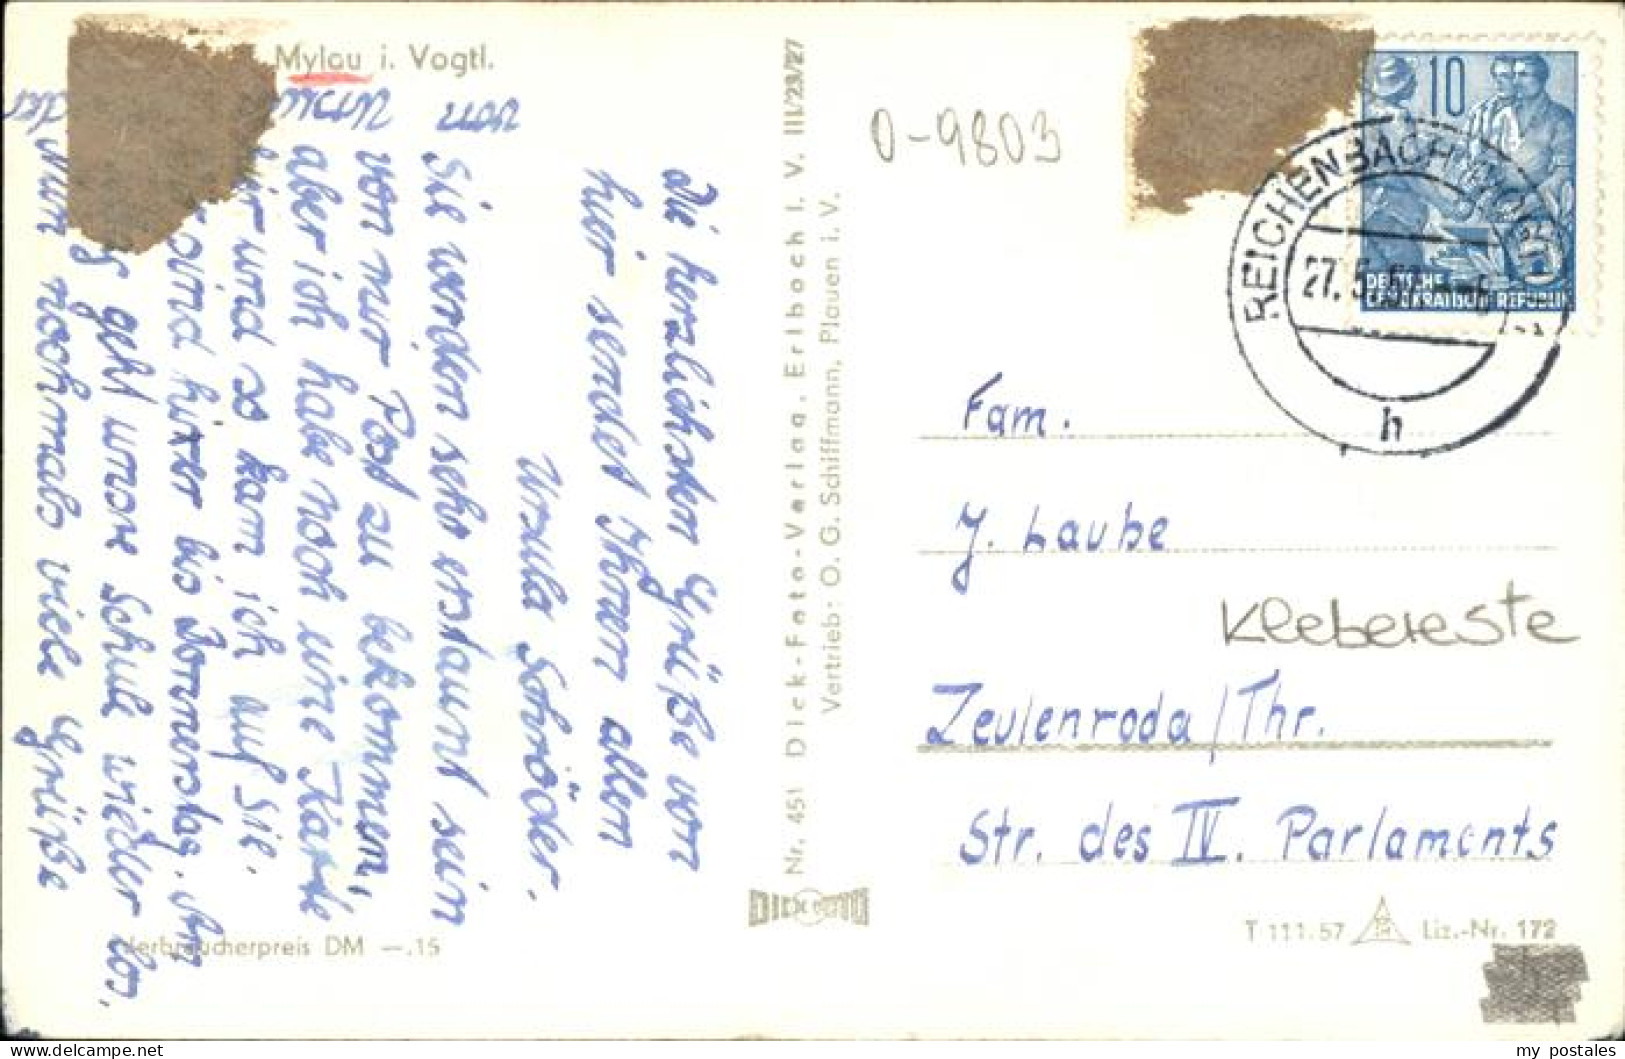 Mylau i. Vogtl.
Die herzlichsten Grüße von
hier sendet Ihnen allen
Ursula Schröder.
Sie werden sehr erstaunt sein
von mir Post zu bekommen,
aber ich habe noch eine Karte
und so kam ich auf Sie.
sind hier bis Donnerstag. Am
geht unsre Schule wieder los.
Nun nochmals viele Grüße
der
von
Verbraucherpreis DM —.15
Nr. 451 Dick-Foto-Verlag, Erlbach i. V. III/23/27
Vertrieb: O. G. Schiffmann, Plauen i. V.
DICK FOTO
0-9803
10
DEUTSCHE
DEMOKRATISCHE REPUBLIK
REICHENBACH (VOGTL)
27. 5.
h
Fam.
J. Laube
Klebereste
Zeulenroda/Thr.
Str. des IV. Parlaments
T 111.57 Liz.-Nr. 172
my_postales